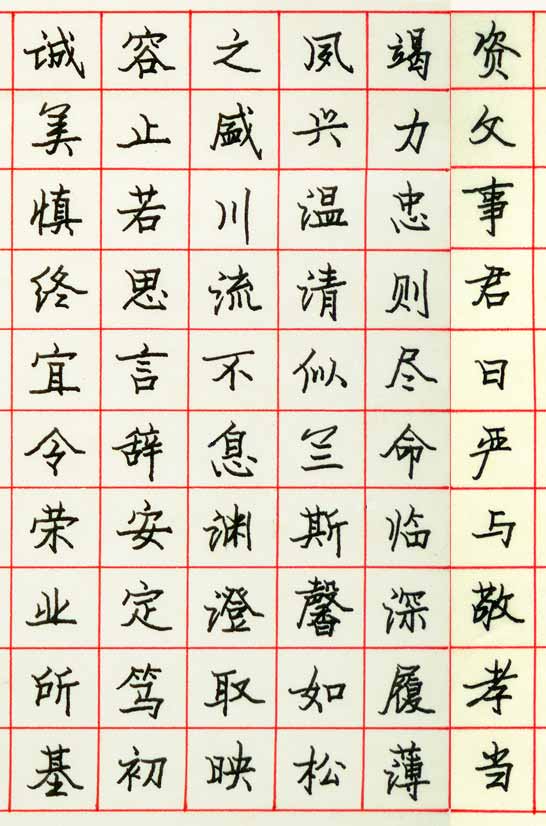 资父事君曰严与敬孝当
竭力忠则尽命临深履薄
夙兴温清似兰斯馨如松
之盛川流不息渊澄取映
容止若思言辞安定笃初
诚美慎终宜令荣业所基